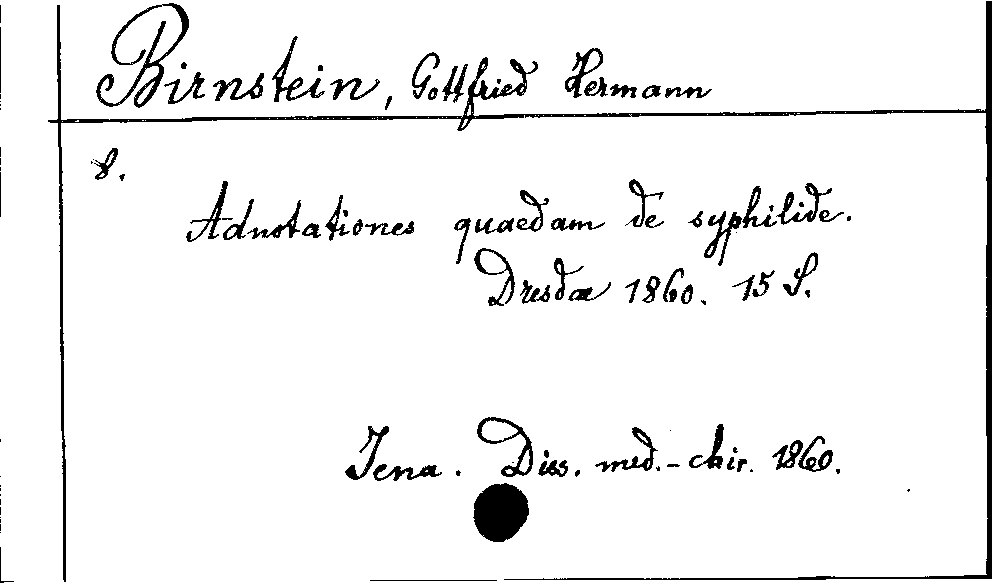 Birnstein, Gottfried Hermann
8.
Adnotationes quaedam de syphilide.
Dresdae 1860. 15 S.
Jena. Diss. med.-chir. 1860.